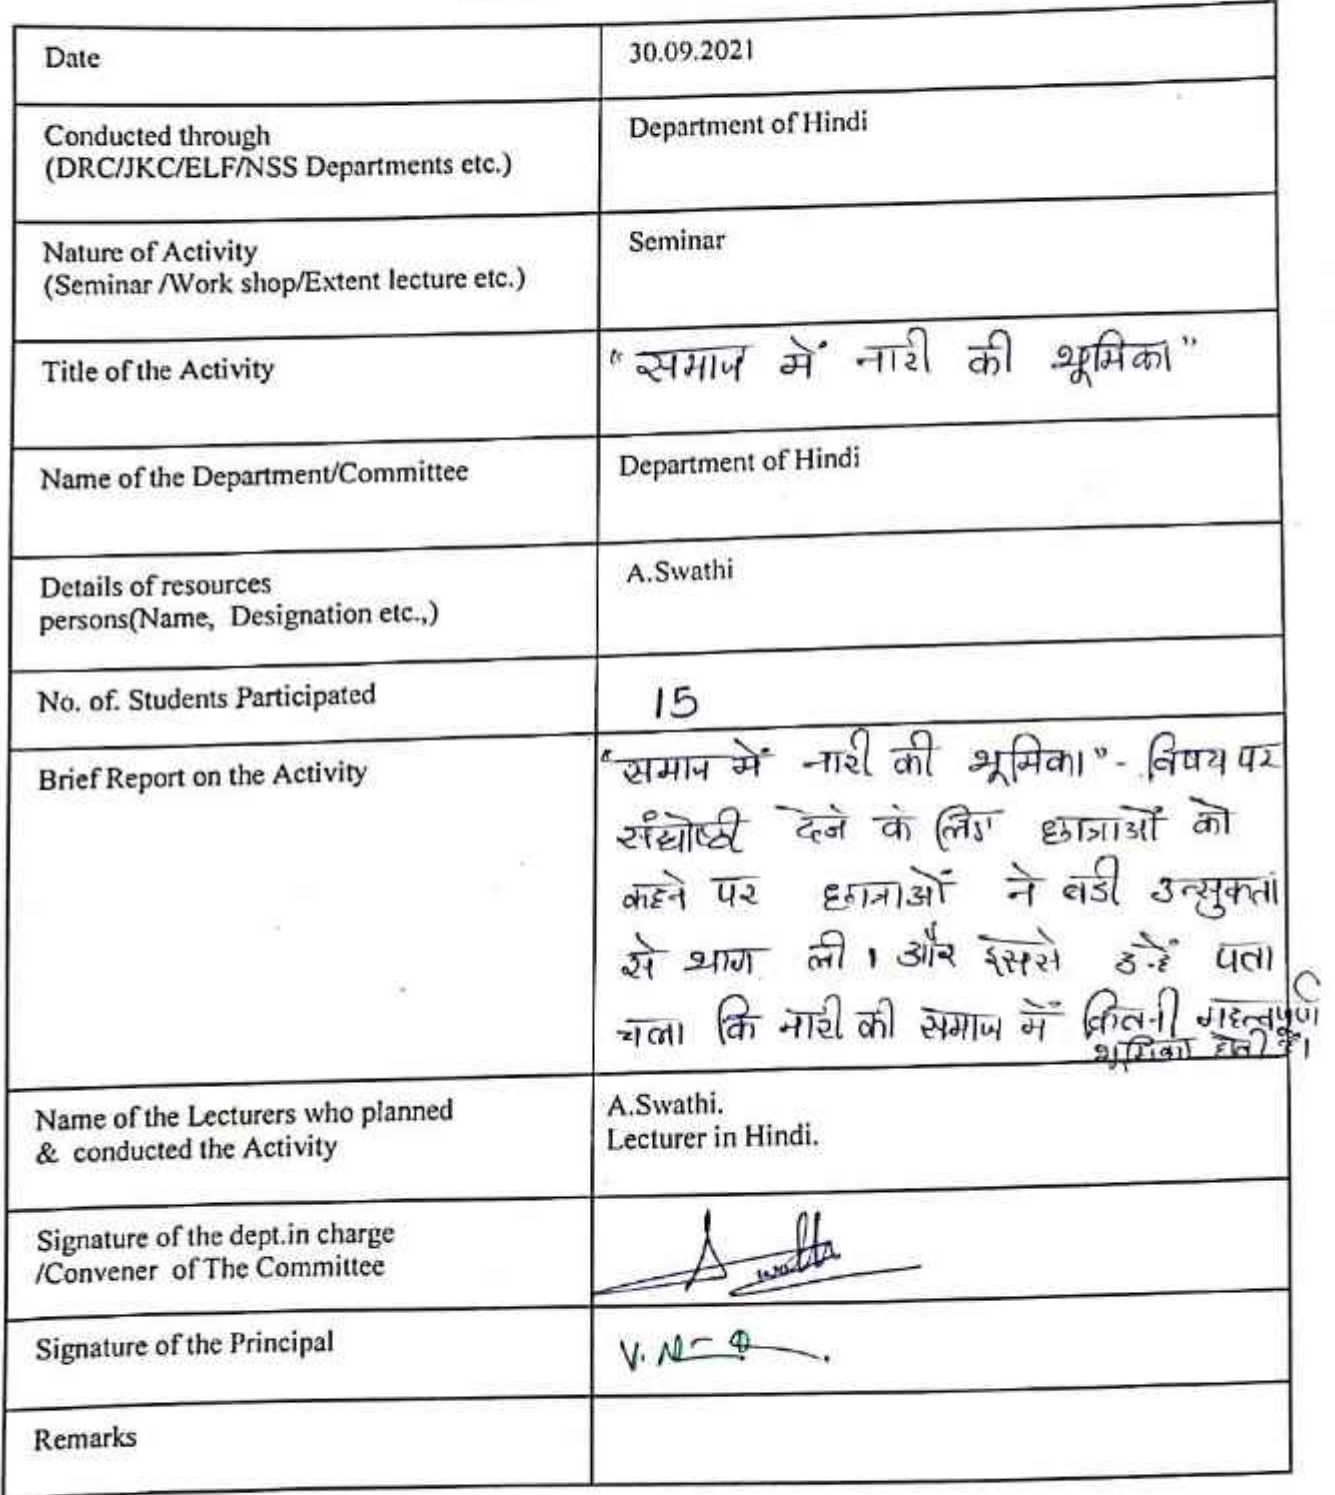 Date
30.09.2021
Conducted through
(DRC/JKC/ELF/NSS Departments etc.)
Department of Hindi
Nature of Activity
(Seminar /Work shop/Extent lecture etc.)
Seminar
Title of the Activity
"समाज में नारी की भूमिका"
Name of the Department/Committee
Department of Hindi
Details of resources
persons(Name, Designation etc.,)
A.Swathi
No. of. Students Participated
15
Brief Report on the Activity
"समाज में नारी की भूमिका" - विषय पर
संघोष्ठी देने के लिए छात्राओं को
कहने पर छात्राओं ने बडी उत्सुकता
से भाग ली । और इससे उन्हें पता
चला कि नारी की समाज में कितनी महत्वपूर्ण
भूमिका होती है।
Name of the Lecturers who planned
& conducted the Activity
A.Swathi.
Lecturer in Hindi.
Signature of the dept.in charge
/Convener of The Committee
Signature of the Principal
Remarks